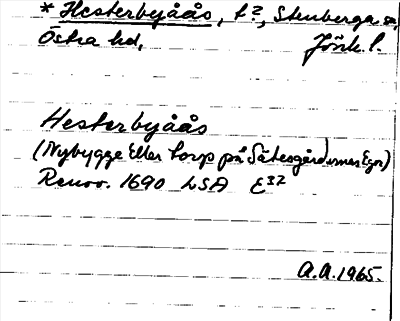 * Hesterbyåås, t?, Stenberga sn,
Östra hd, Jönk. l.
Hesterbyåås
(Nybygge Eller torp på Sätesgårdernes Egor)
Renov. 1690 LSA E32
A.A. 1965.